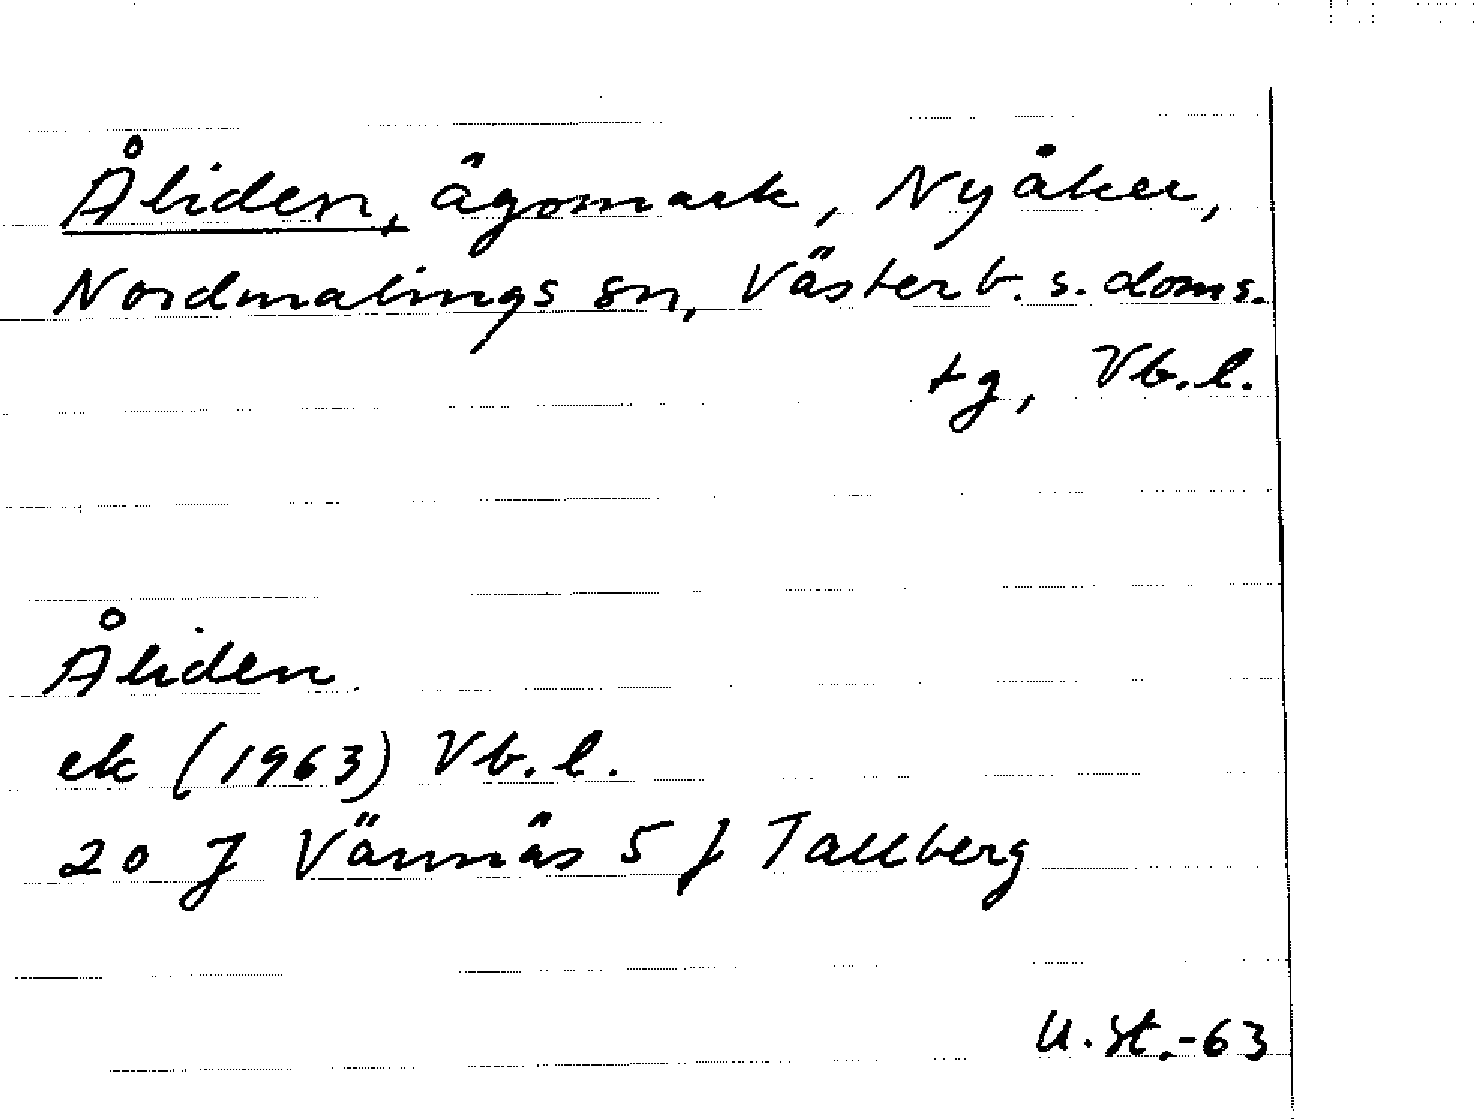 Åliden, ägomark, Nyåker,
Nordmalings sn, Västerb. s. doms.
tg, Vb. l.
Åliden
ek (1963) Vb. l.
20 J Vännäs 5 f Tallberg
U. St. -63